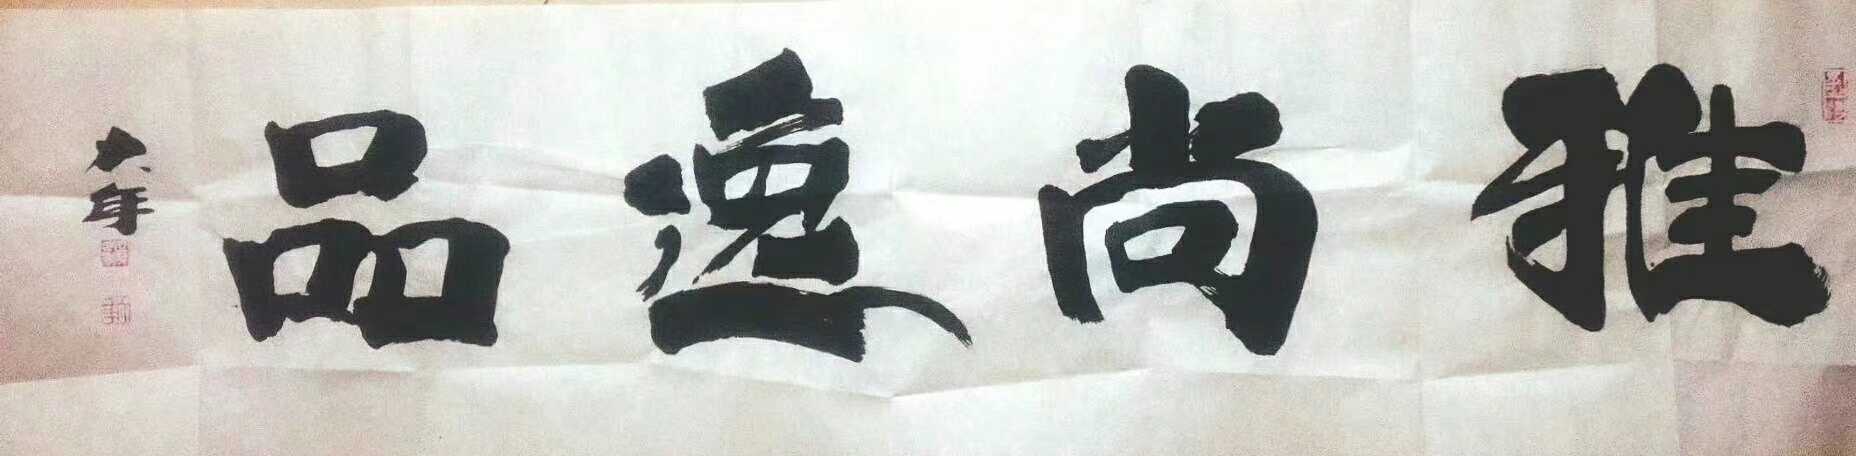 雅尚逸品
大年